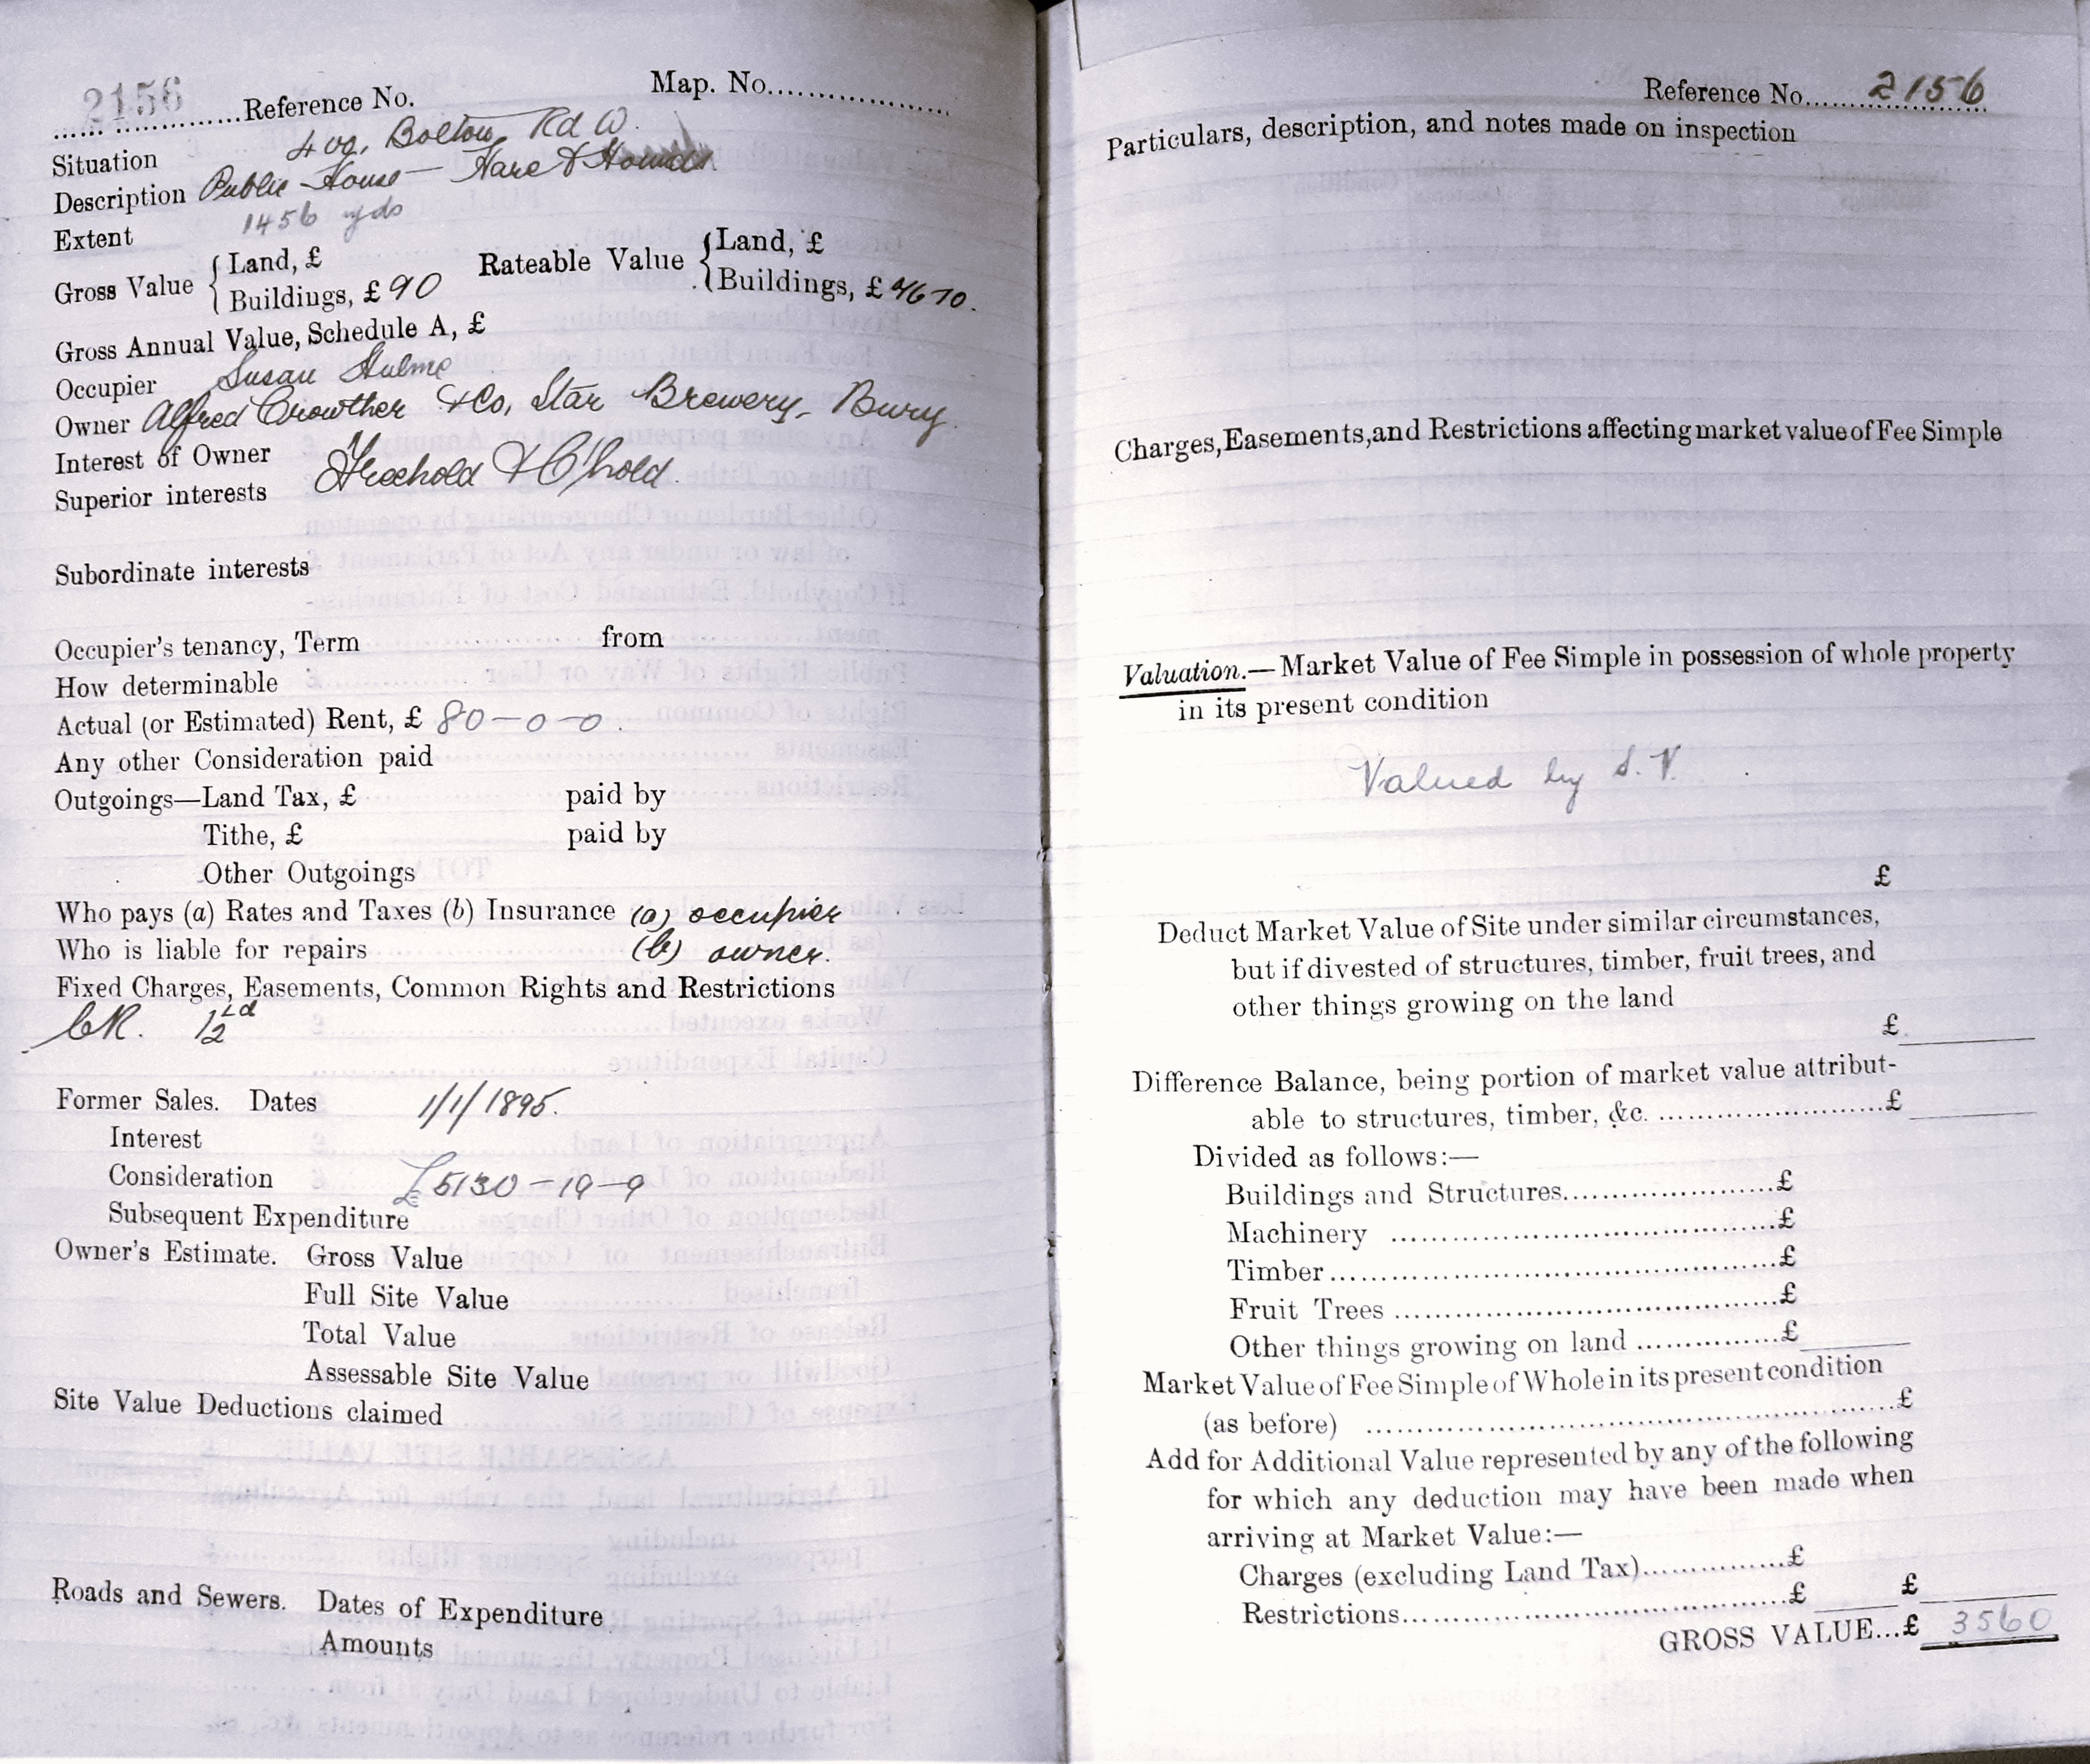 2156 Reference No. Map. No.
Situation 400, Bolton Rd W.
Description Public House — Hare & Hounds
Extent 1456 yds
Gross Value { Land, £ Rateable Value { Land, £
Buildings, £ 90 Buildings, £
Gross Annual Value, Schedule A, £
Occupier Susan Hulme
Owner Alfred Crowther & Co, Star Brewery, Bury.
Interest of Owner Freehold & C'hold.
Superior interests
Subordinate interests
Occupier's tenancy, Term from
How determinable
Actual (or Estimated) Rent, £ 80-0-0.
Any other Consideration paid
Outgoings—Land Tax, £ paid by
Tithe, £ paid by
Other Outgoings
Who pays (a) Rates and Taxes (b) Insurance (a) occupier
Who is liable for repairs (b) owner.
Fixed Charges, Easements, Common Rights and Restrictions
CR.
Former Sales. Dates 1/1/1895.
Interest
Consideration £5130-19-9
Subsequent Expenditure
Owner's Estimate. Gross Value
Full Site Value
Total Value
Assessable Site Value
Site Value Deductions claimed
Roads and Sewers. Dates of Expenditure
Amounts
Reference No. 2156
Particulars, description, and notes made on inspection
Charges, Easements, and Restrictions affecting market value of Fee Simple
Valuation.—Market Value of Fee Simple in possession of whole property
in its present condition
Valued by S.V.
£
Deduct Market Value of Site under similar circumstances,
but if divested of structures, timber, fruit trees, and
other things growing on the land
£
Difference Balance, being portion of market value attribut-
able to structures, timber, &c. £
Divided as follows:—
Buildings and Structures £
Machinery £
Timber £
Fruit Trees £
Other things growing on land £
Market Value of Fee Simple of Whole in its present condition
(as before) £
Add for Additional Value represented by any of the following
for which any deduction may have been made when
arriving at Market Value:—
Charges (excluding Land Tax) £
Restrictions £ £
GROSS VALUE...£ 3560